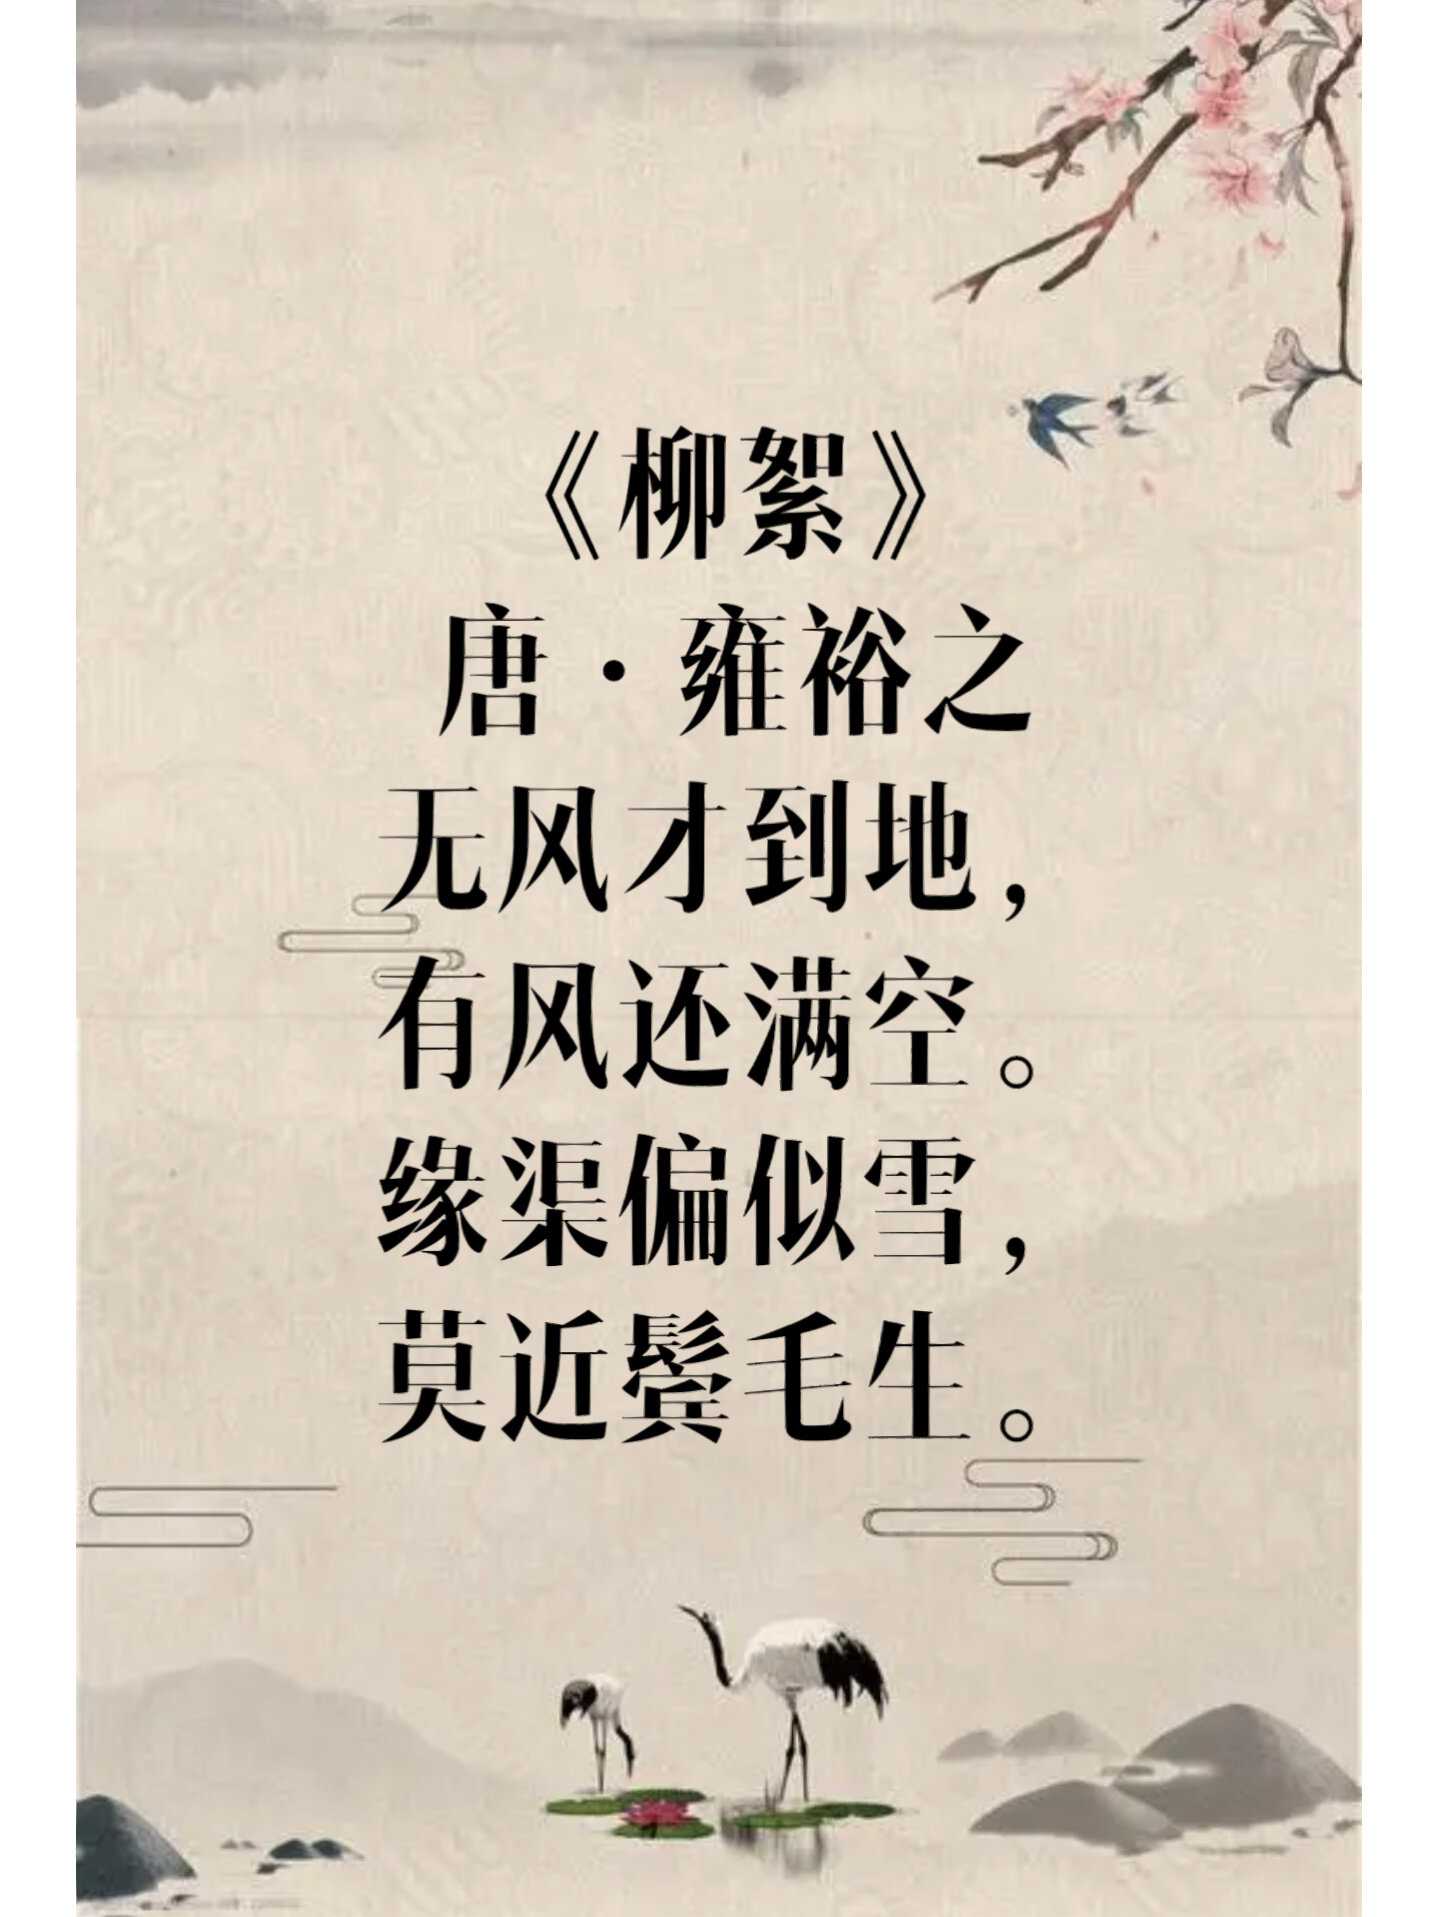 《柳絮》
唐·雍裕之
无风才到地，
有风还满空。
缘渠偏似雪，
莫近鬓毛生。